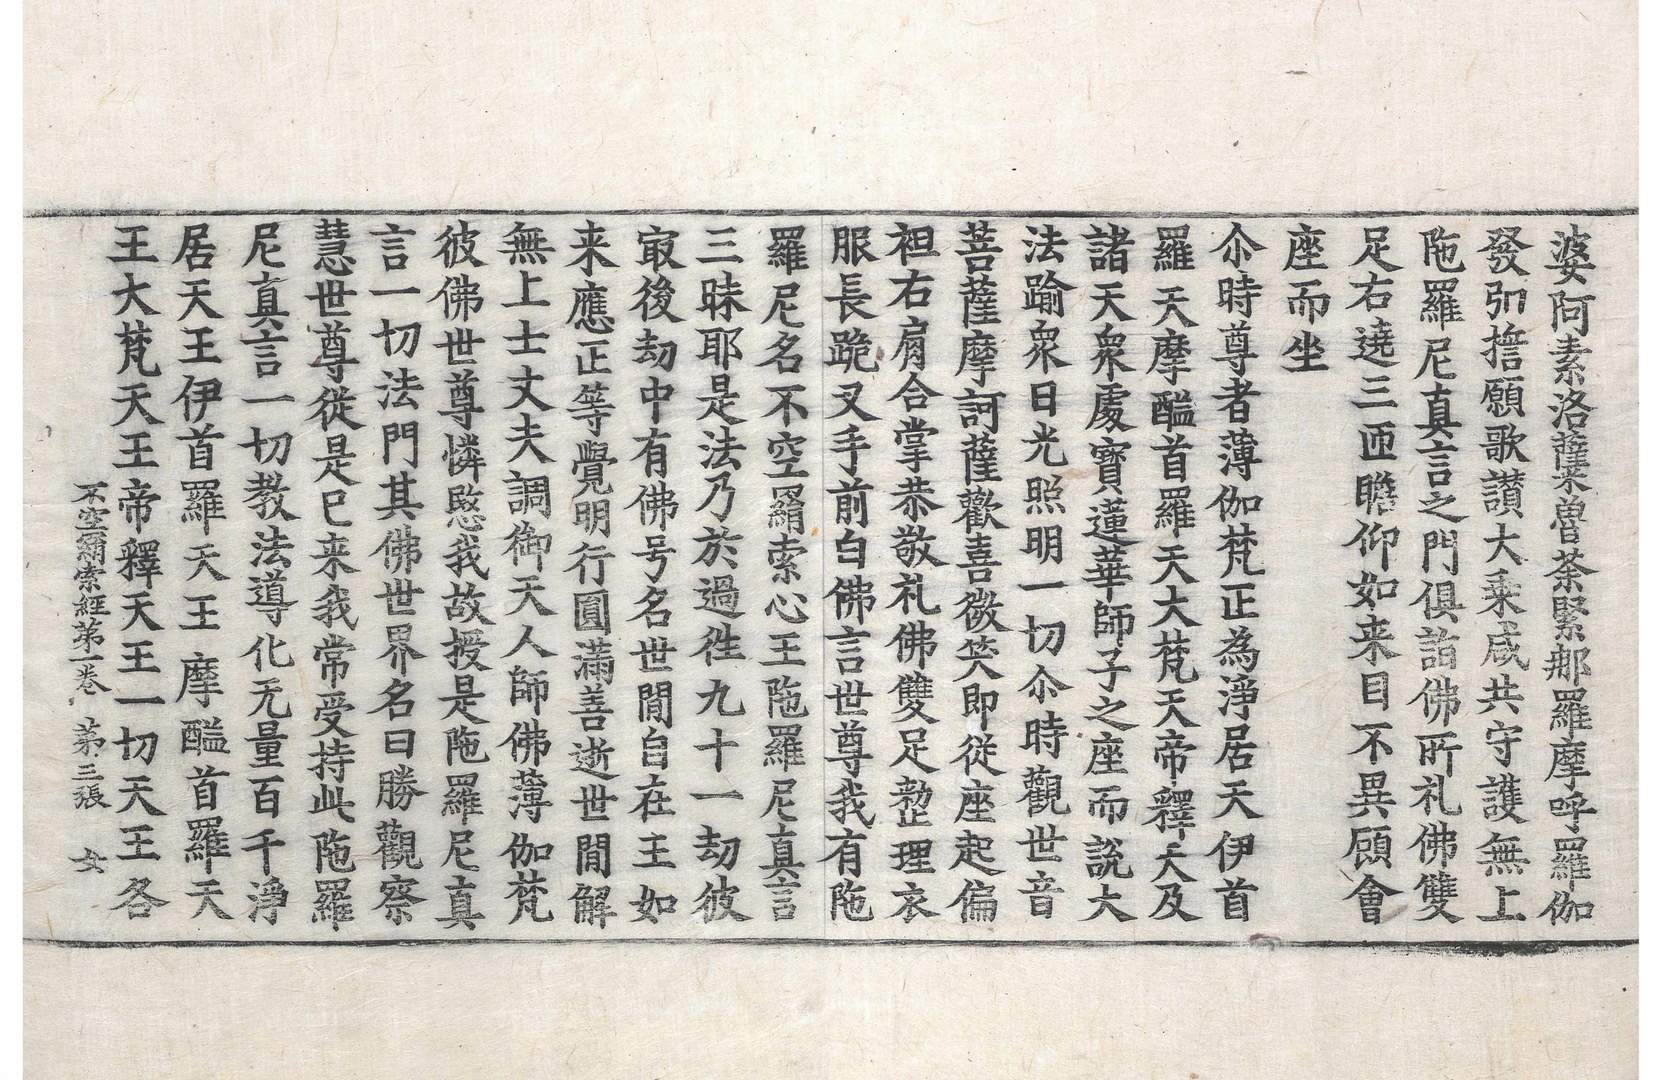 婆阿素洛薩蘖魯荼緊那羅摩呼羅伽
發弘擔願歌讃大乗咸共守護無上
陁羅尼真言之門俱詣佛所礼佛雙
足右遶三匝瞻仰如来目不異顧會
座而坐
尒時尊者薄伽梵正為淨居天伊首
羅天摩醯首羅天大梵天帝釋天及
諸天衆處寶蓮華師子之座而說大
法踰衆日光照明一切尒時觀世音
菩薩摩訶薩歡喜微笑即從座起偏
袒右肩合掌恭敬礼佛雙足整理衣
服長跪叉手前白佛言世尊我有陁
羅尼名不空羂索心王陁羅尼真言
三昧耶是法乃於過徃九十一劫彼
㝡後劫中有佛号名世間自在王如
来應正等覺明行圓滿善逝世間解
無上士丈夫調御天人師佛薄伽梵
彼佛世尊憐愍我故授是陁羅尼真
言一切法門其佛世界名曰勝觀察
慧世尊從是已来我常受持此陁羅
尼真言一切教法導化无量百千淨
居天王伊首羅天王摩醯首羅天
王大梵天王帝釋天王一切天王各
不空羂索經第一卷　第三張　女